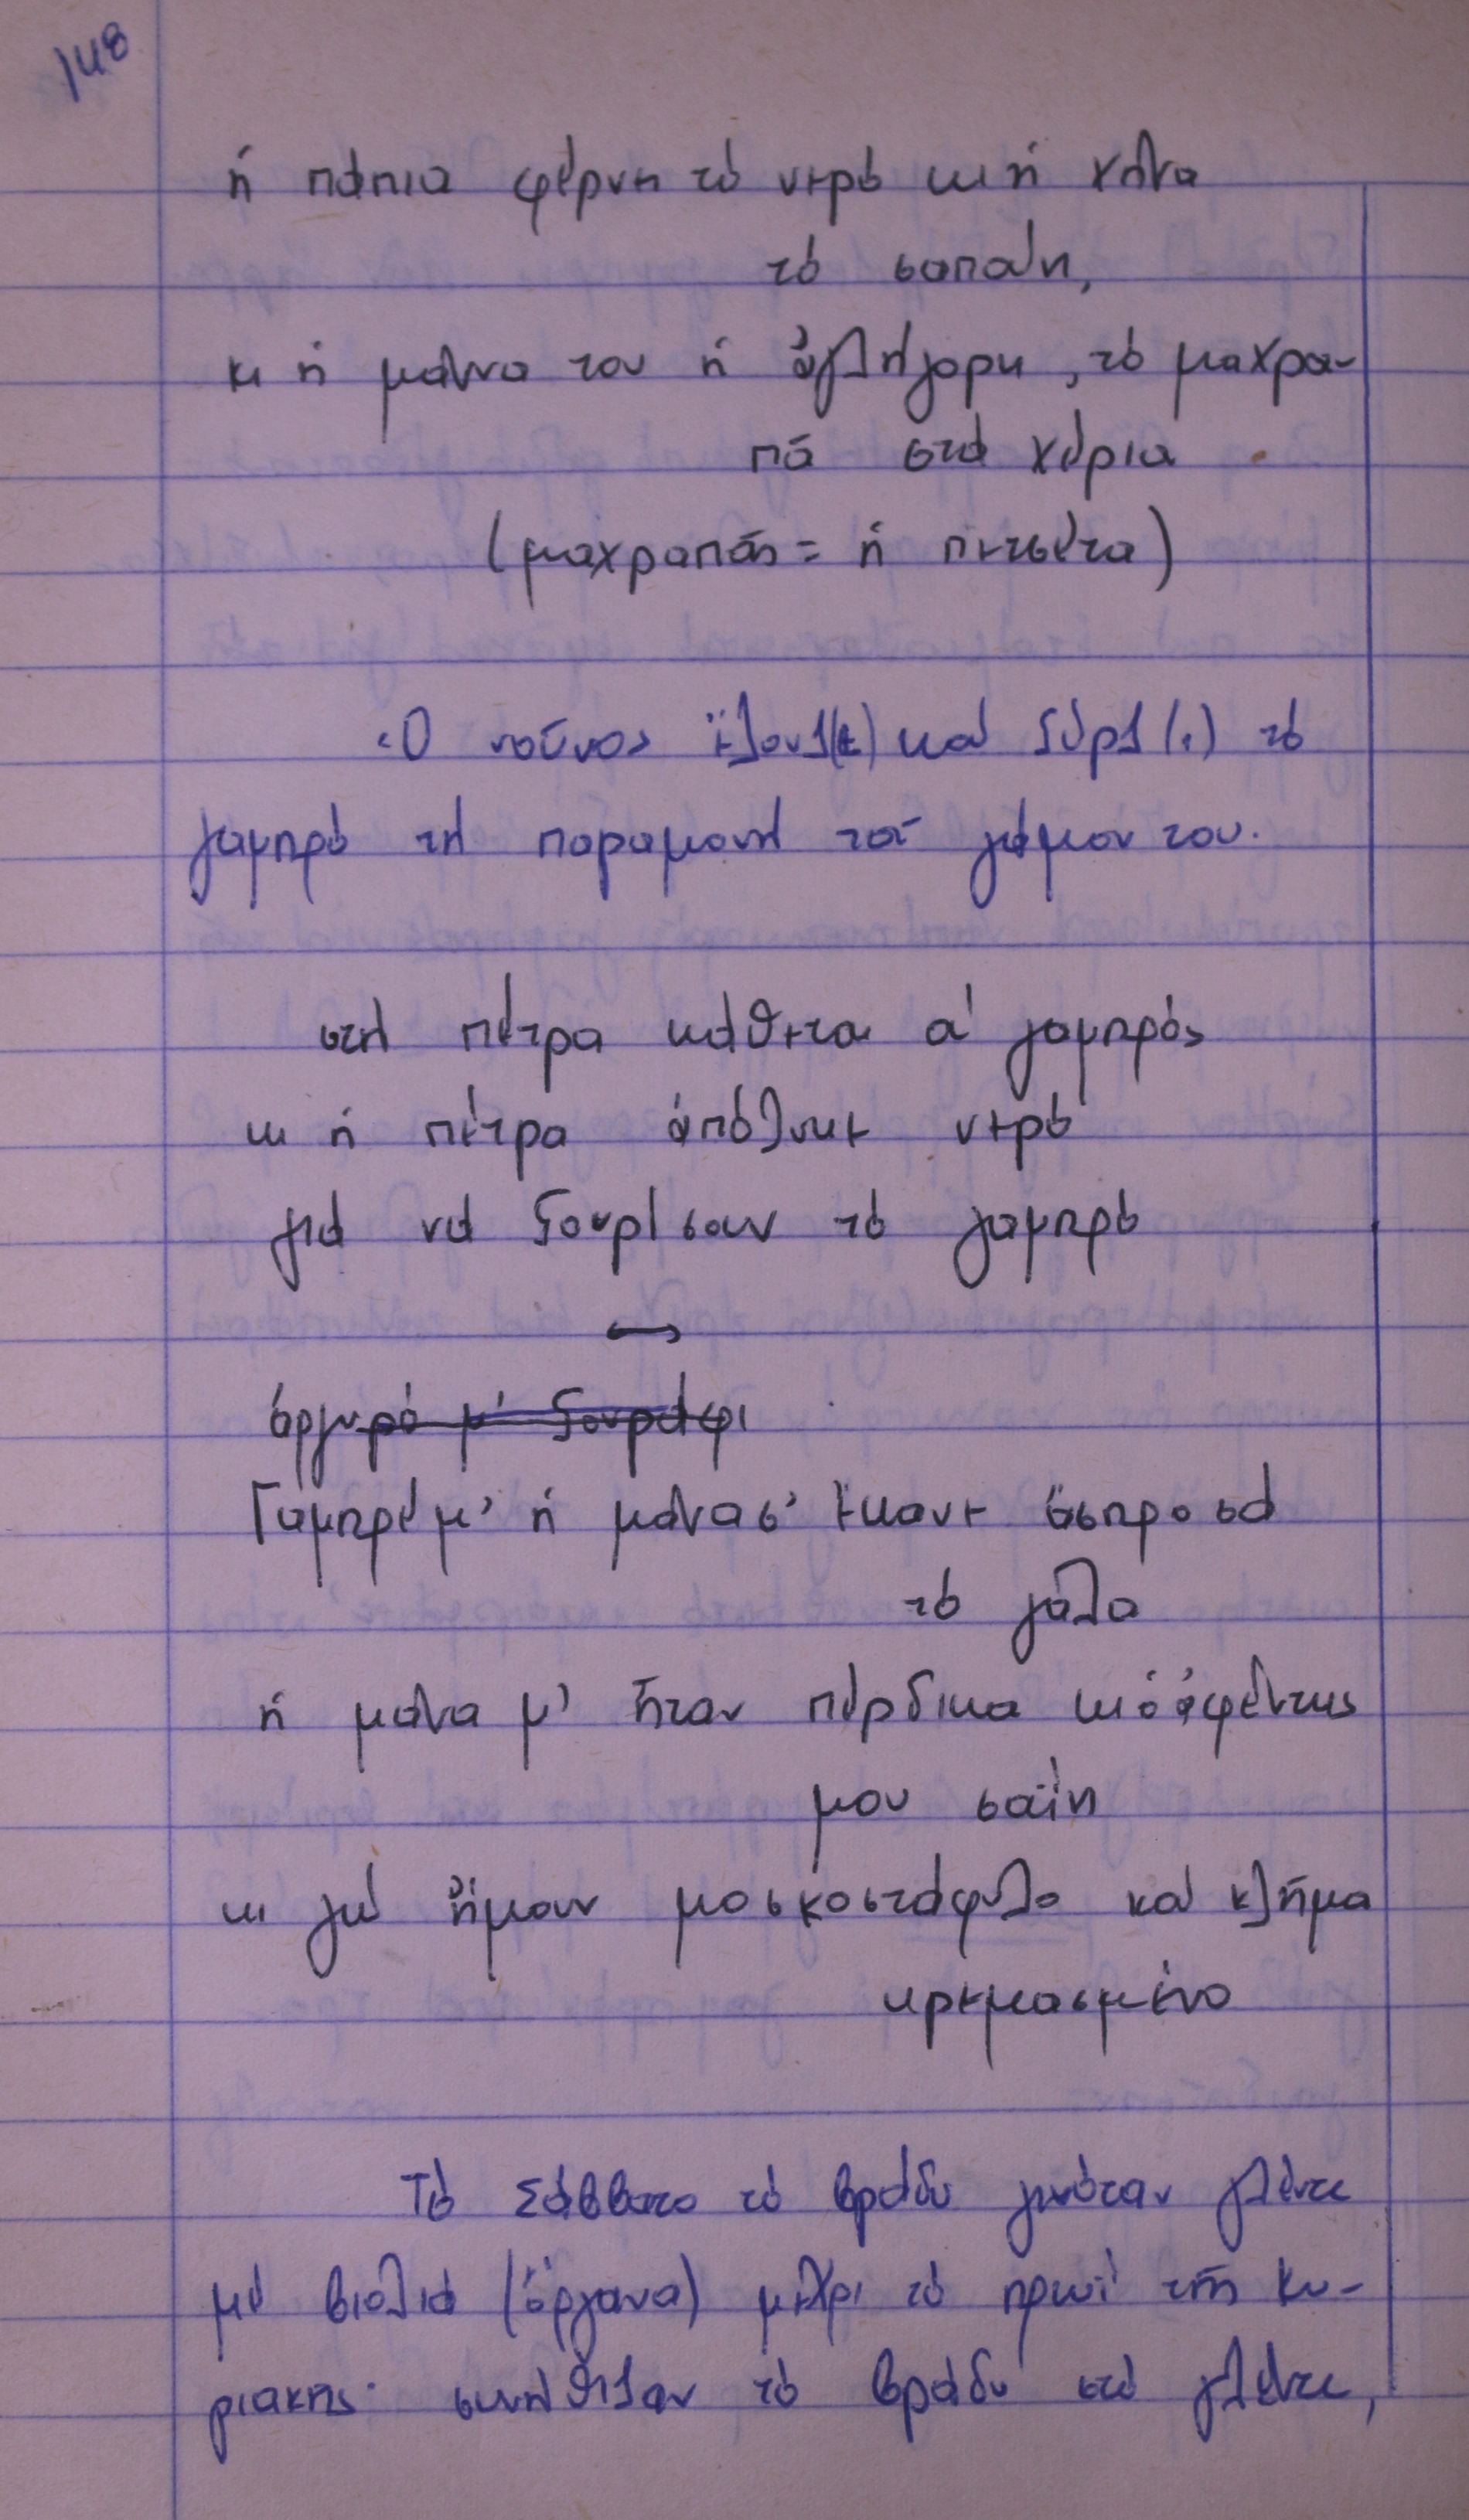 148
ἡ πάπια φέρνη τό νερό κι ἡ χήνα
τό σαπούνη,
κι ἡ μάννα του ἡ ἀγλήγορη, τό μαχρα-
πά στά χέρια
(μαχραπάς = ἡ πετσέτα)
Ὁ νοῦνος ἔλουζ(ε) καί ξύριζ(ι) τό
γαμπρό τή παραμονή τοῦ γάμου του.
στή πέτρα κάθεται ὁ γαμπρός
κι ἡ πέτρα ἀπόλυκε νερό
γιά νά ξουρίσουν τό γαμπρό
ἀργυρό μ' ξουράφι
Γαμπρέ μ' ἡ μάνα σ' έκανε ἄσπρο σά
τό γάλα
ἡ μάνα μ' ἦταν πέρδικα κι ὁ ἀφέντης
μου σαΐνη
κι γώ ἤμουν μοσκοστάφυλο καί κλῆμα
κρεμασμένο
Τό Σάββατο τό βράδυ γινόταν γλέντι
μέ βιολιά (ὄργανα) μέχρι τό πρωί τῆς Κυ-
ριακῆς. συνήθιζαν τό βράδυ στό γλέντι,